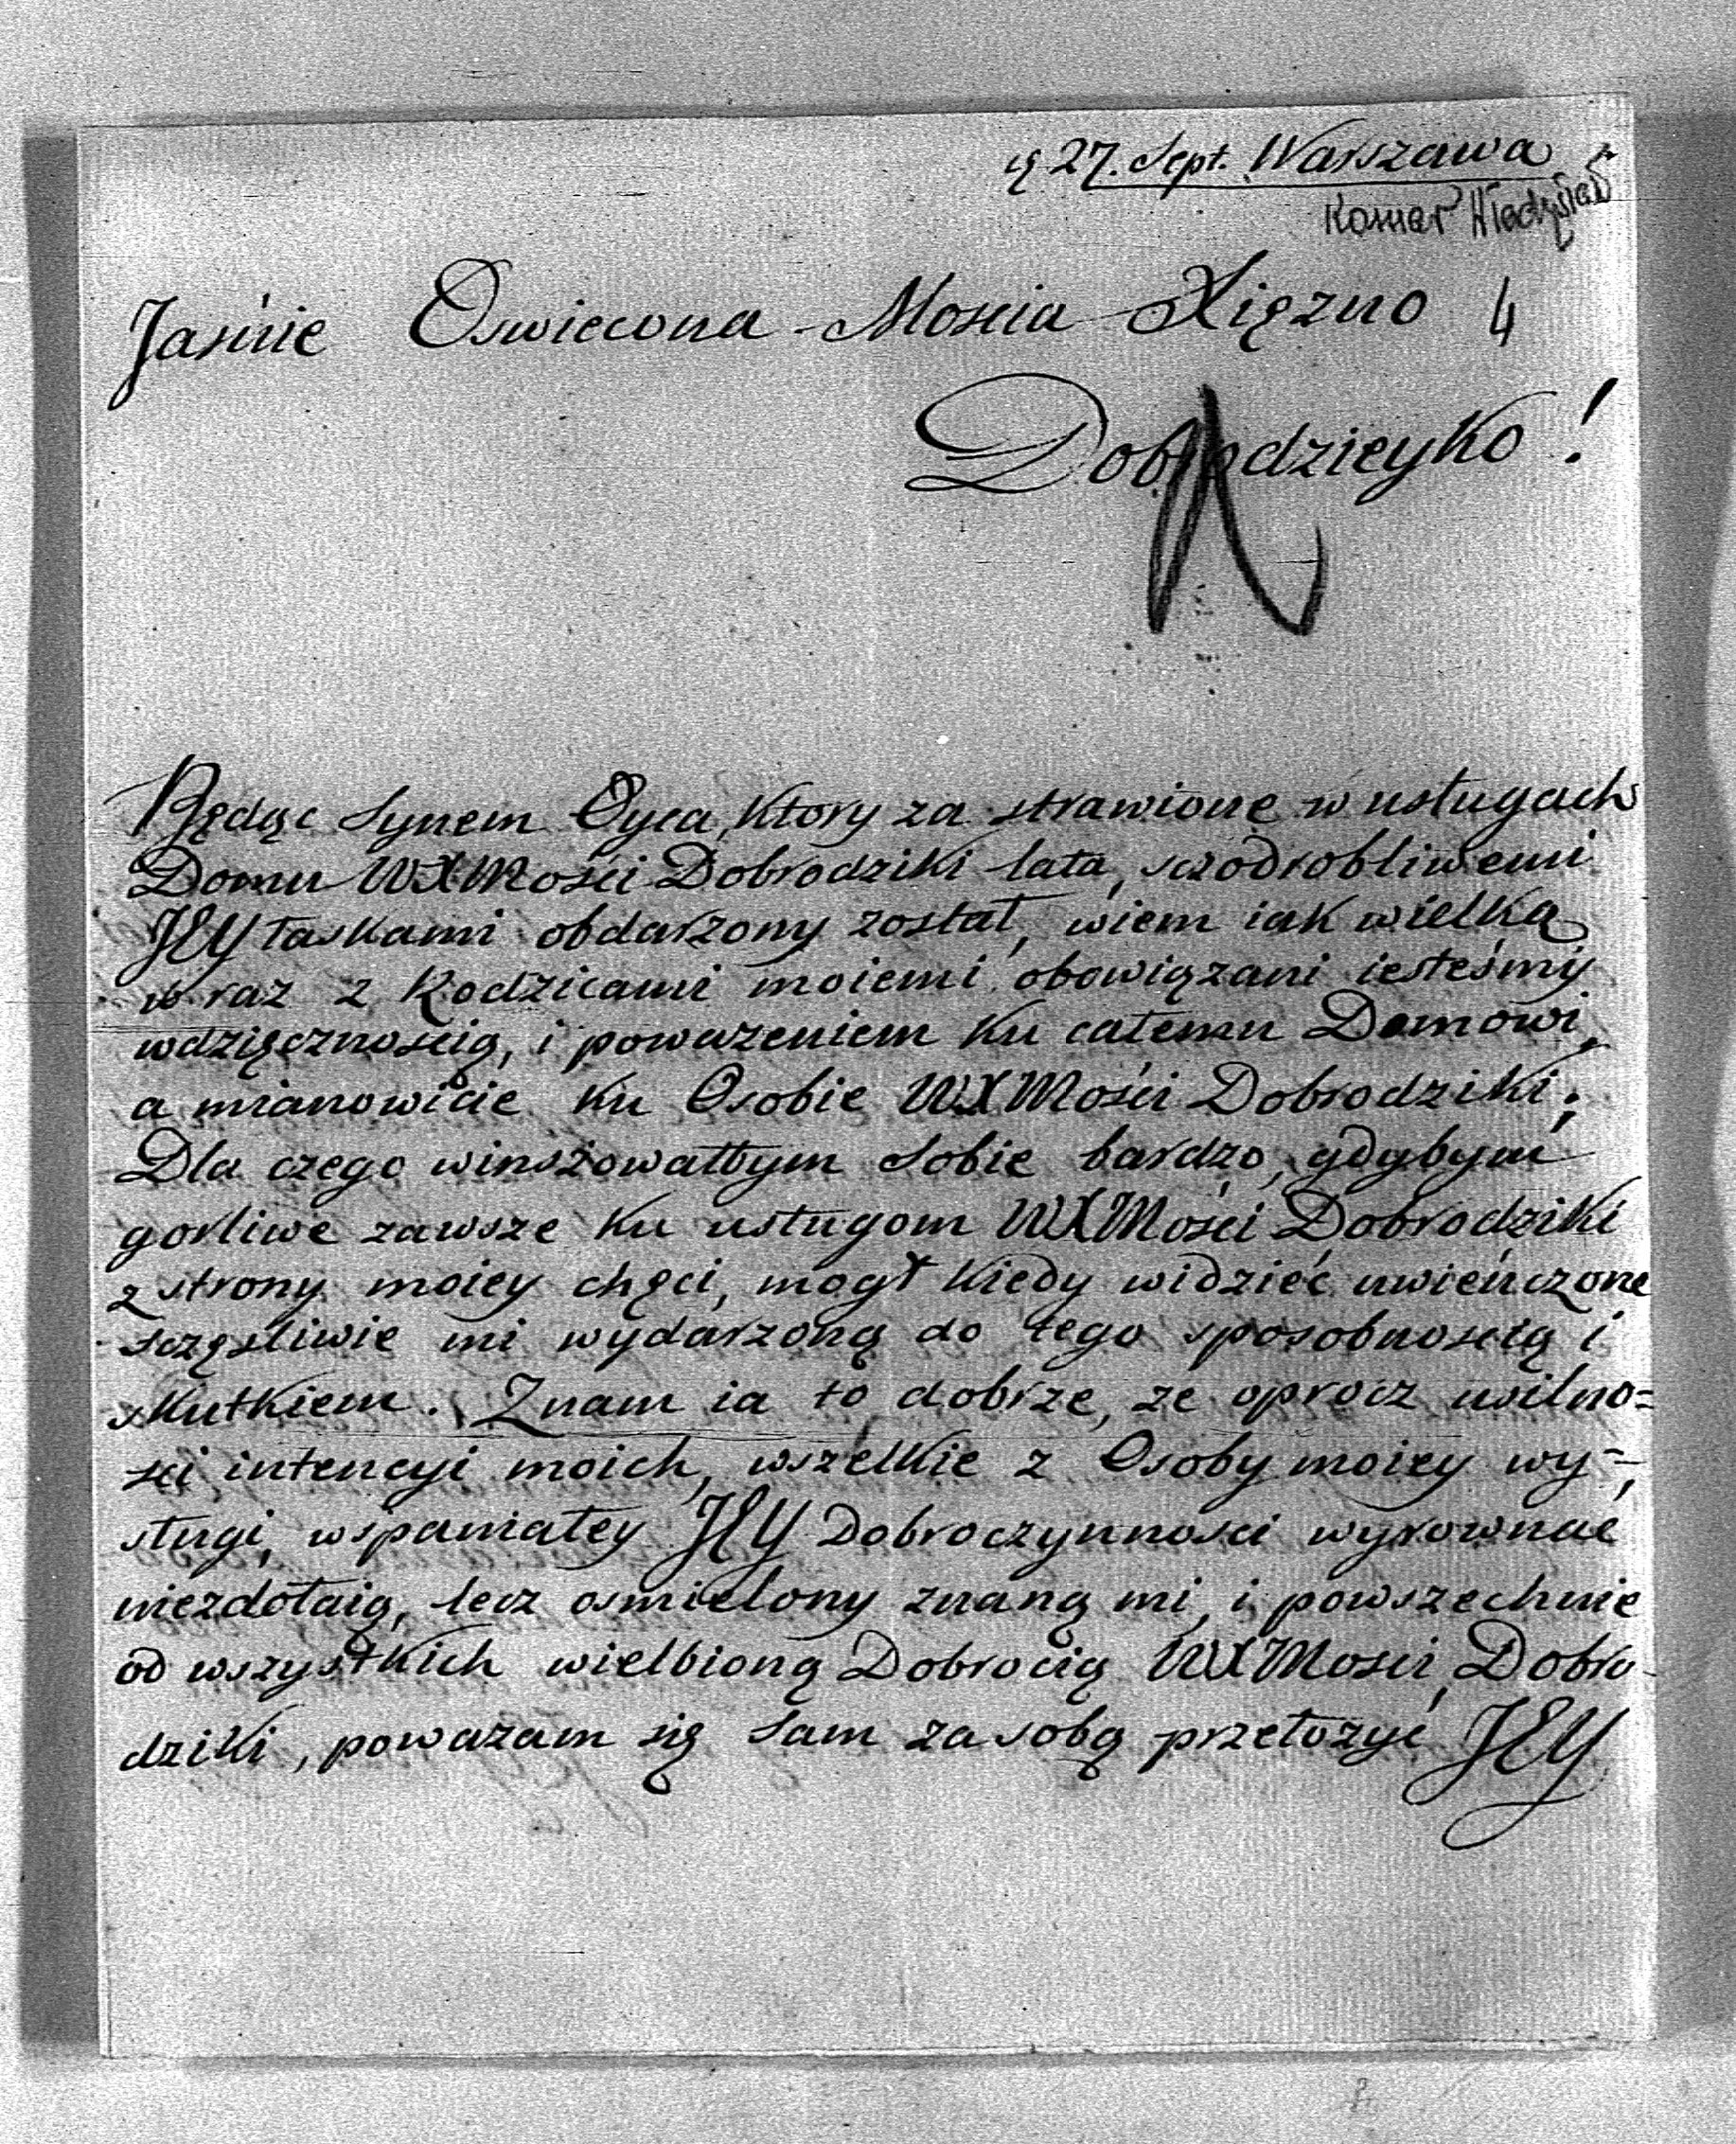 27. Sept. Warszawa
Komar Władysław
Jasnie Oswiecona Moscia Xięzno 4
Dobrodzieyko!
Będąc Synem Oyca, ktory za strawione w usługach
Domu WXMości Dobrodziki lata, sczodrobliwemi
JEY łaskami obdarzony został, wiem iak wielką
w raz z Rodzicami moiemi obowiązani iesteśmy
wdzięcznoscią, i powazeniem ku całemu Domowi,
a mianowicie ku Osobie WXMości Dobrodziki;
Dla czego winszowałbym sobie bardzo, gdybym
gorliwe zawsze ku usługom WXMości Dobrodziki
z strony moiey chęci, mogł kiedy widzieć uwieńczone
sczęsliwie mi wydarzoną do tego sposobnoscią i
skutkiem. Znam ia to dobrze, ze oprocz usilno=
sci intencyi moich, wszelkie z Osoby moiey wy-
sługi, wspaniałey JEY Dobroczynnosci wyrownać
niezdołaią, lecz osmielony znaną mi, i powszechnie
od wszystkich wielbioną Dobrocią WXMosci Dobro-
dziki, powazam się sam za sobą przełozyć JEY